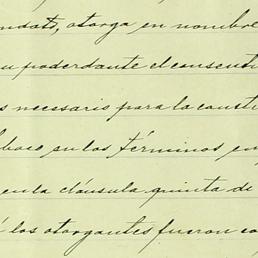 ndato, otorga en nombre
u poderdante el consenti
s necesaris para la consti
hace en los términos en
en la cláusula quinta de
los otorgantes fueron co